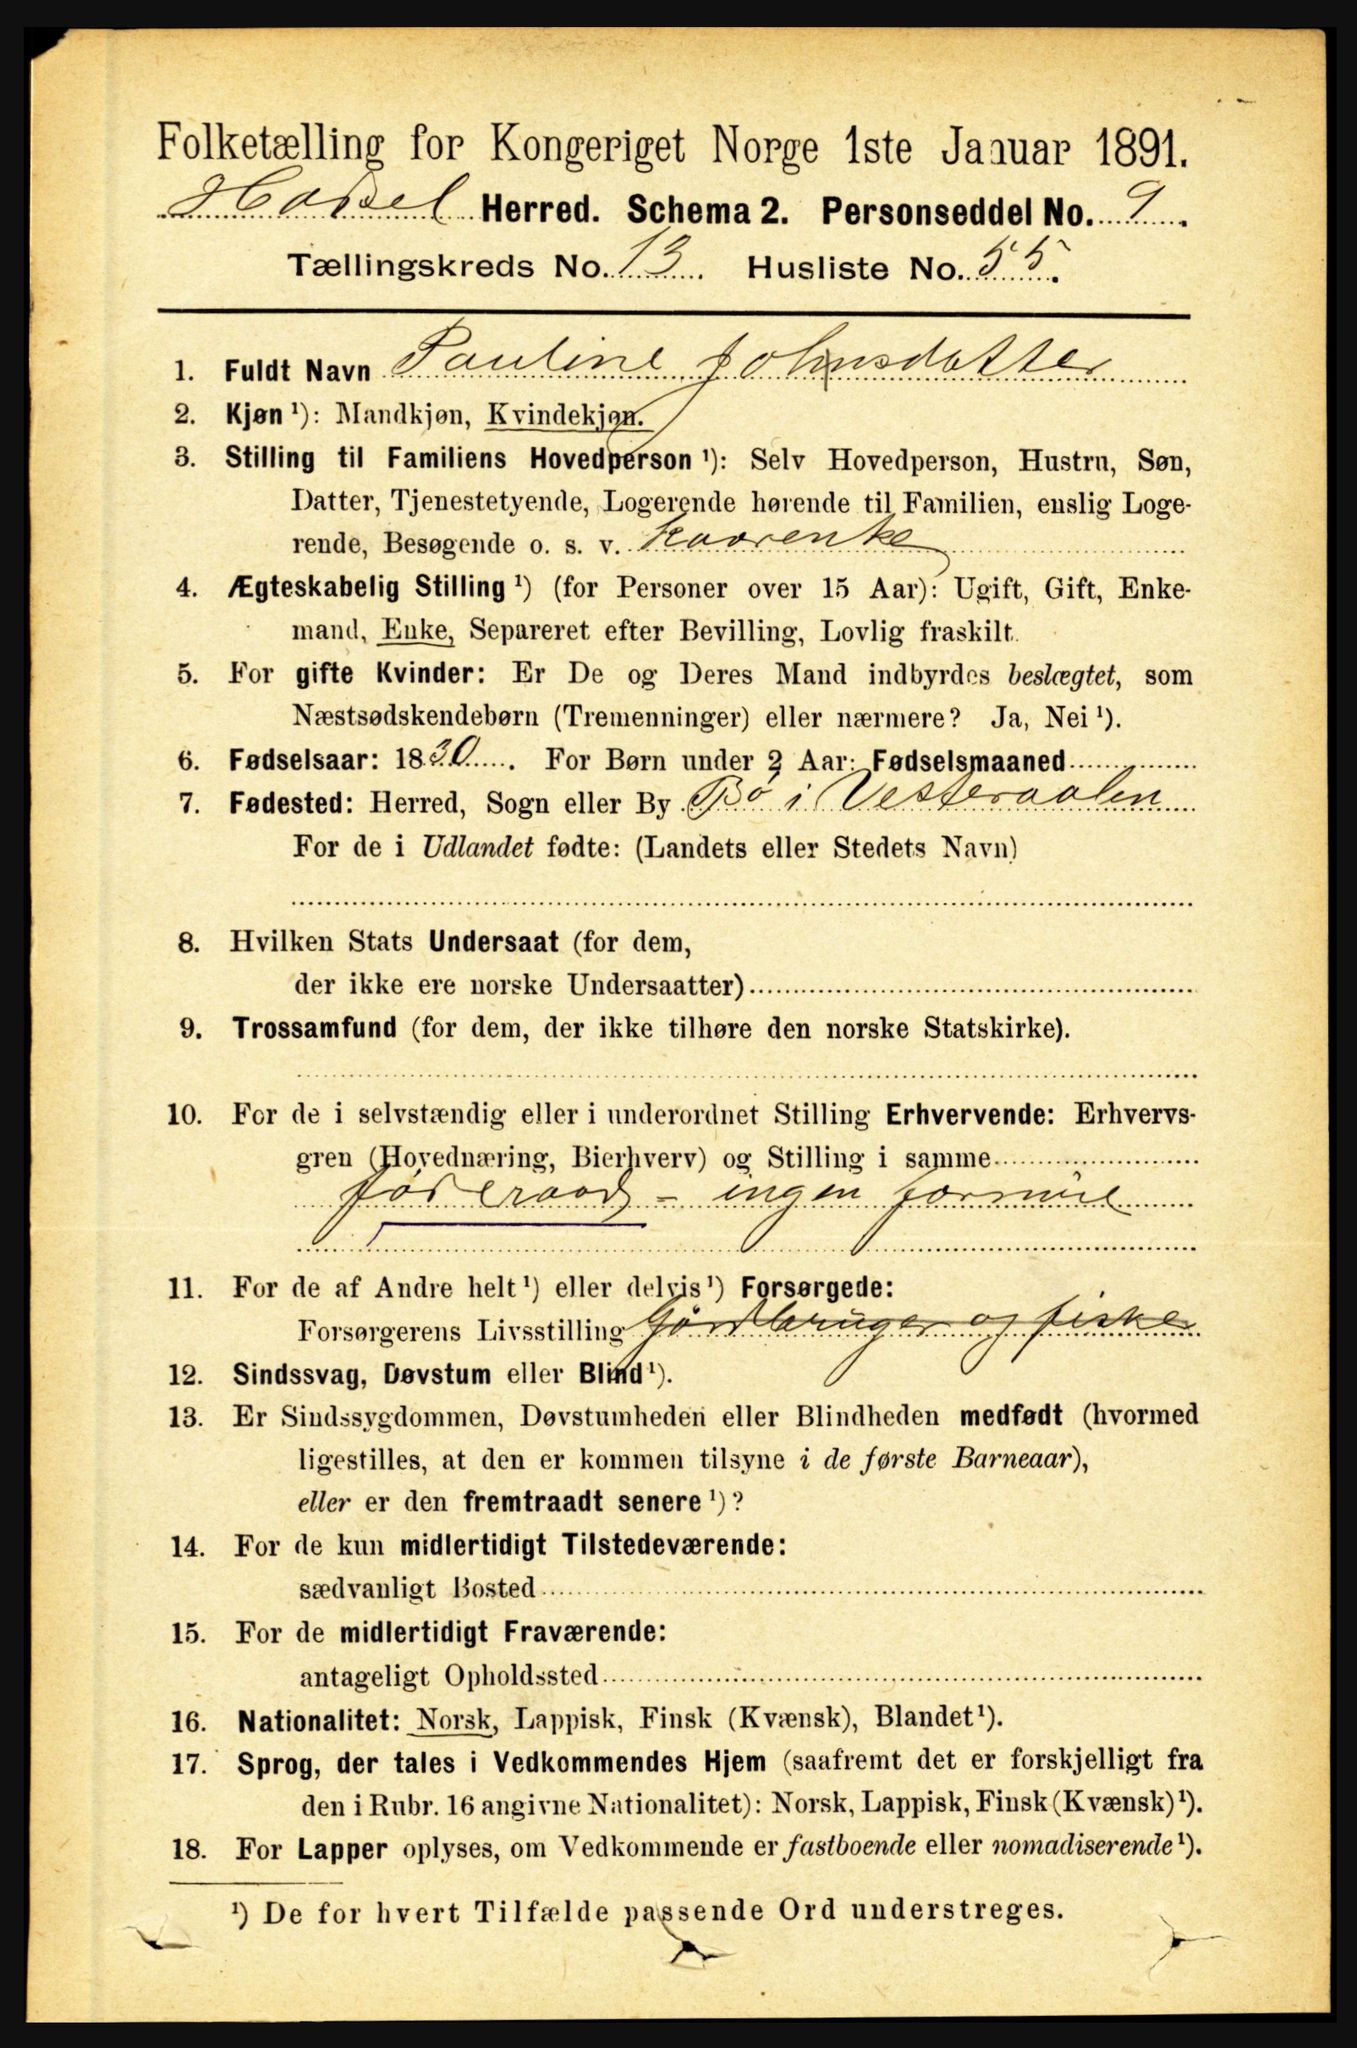 Folketælling for Kongeriget Norge 1ste Januar 1891.
Hadsel Herred. Schema 2. Personseddel No. 9.
Tællingskreds No. 13. Husliste No. 55.
1. Fuldt Navn Pauline Johnsdatter
2. Kjøn¹): Mandkjøn, Kvindekjøn.
3. Stilling til Familiens Hovedperson¹): Selv Hovedperson, Hustru, Søn,
Datter, Tjenestetyende, Logerende hørende til Familien, enslig Loge-
rende, Besøgende o. s. v. Kaarenke
4. Ægteskabelig Stilling¹) (for Personer over 15 Aar): Ugift, Gift, Enke-
mand, Enke, Separeret efter Bevilling, Lovlig fraskilt.
5. For gifte Kvinder: Er De og Deres Mand indbyrdes beslægtet, som
Næstsødskendebørn (Tremenninger) eller nærmere? Ja, Nei¹).
6. Fødselsaar: 1830. For Børn under 2 Aar: Fødselsmaaned
7. Fødested: Herred, Sogn eller By Bø i Vesteraalen
For de i Udlandet fødte: (Landets eller Stedets Navn)
8. Hvilken Stats Undersaat (for dem,
der ikke ere norske Undersaatter)
9. Trossamfund (for dem, der ikke tilhøre den norske Statskirke).
10. For de i selvstændig eller i underordnet Stilling Erhvervende: Erhvervs-
gren (Hovednæring, Bierhverv) og Stilling i samme
föderaad - ingen formue
11. For de af Andre helt¹) eller delvis¹) Forsørgede:
Forsørgerens Livsstilling Gårdbruger og fisker
12. Sindssvag, Døvstum eller Blind¹).
13. Er Sindssygdommen, Døvstumheden eller Blindheden medfødt (hvormed
ligestilles, at den er kommen tilsyne i de første Barneaar),
eller er den fremtraadt senere¹)?
14. For de kun midlertidigt Tilstedeværende:
sædvanligt Bosted
15. For de midlertidigt Fraværende:
antageligt Opholdssted
16. Nationalitet: Norsk, Lappisk, Finsk (Kvænsk), Blandet¹).
17. Sprog, der tales i Vedkommendes Hjem (saafremt det er forskjelligt fra
den i Rubr. 16 angivne Nationalitet): Norsk, Lappisk, Finsk (Kvænsk)¹).
18. For Lapper oplyses, om Vedkommende er fastboende eller nomadiserende¹).
¹) De for hvert Tilfælde passende Ord understreges.